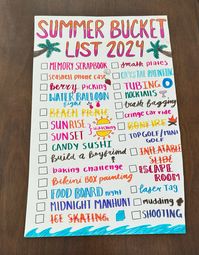 SUMMER BUCKET
LIST 2024
MEMORY SCRAPBOOK
seashell phone case
Berry picking
WATER BALLOON
fight
BEACH PICNIC
SUNRISE
SUNSET
watching
CANDY SUSHI
Build a Boyfriend
baking challenge
Bikini BOX painting
FOOD BOARD night
MIDNIGHT MANHUNT
ICE SKATING
smash plates
CRYSTAL
TUBING
MOCKTAILS
cringe car ride
BONFIRE
TOPGOLF/MINI
GOLF
INFLATABLE
SLIDE
ESCAPE
ROOM
laser tag
mudding
SHOOTING